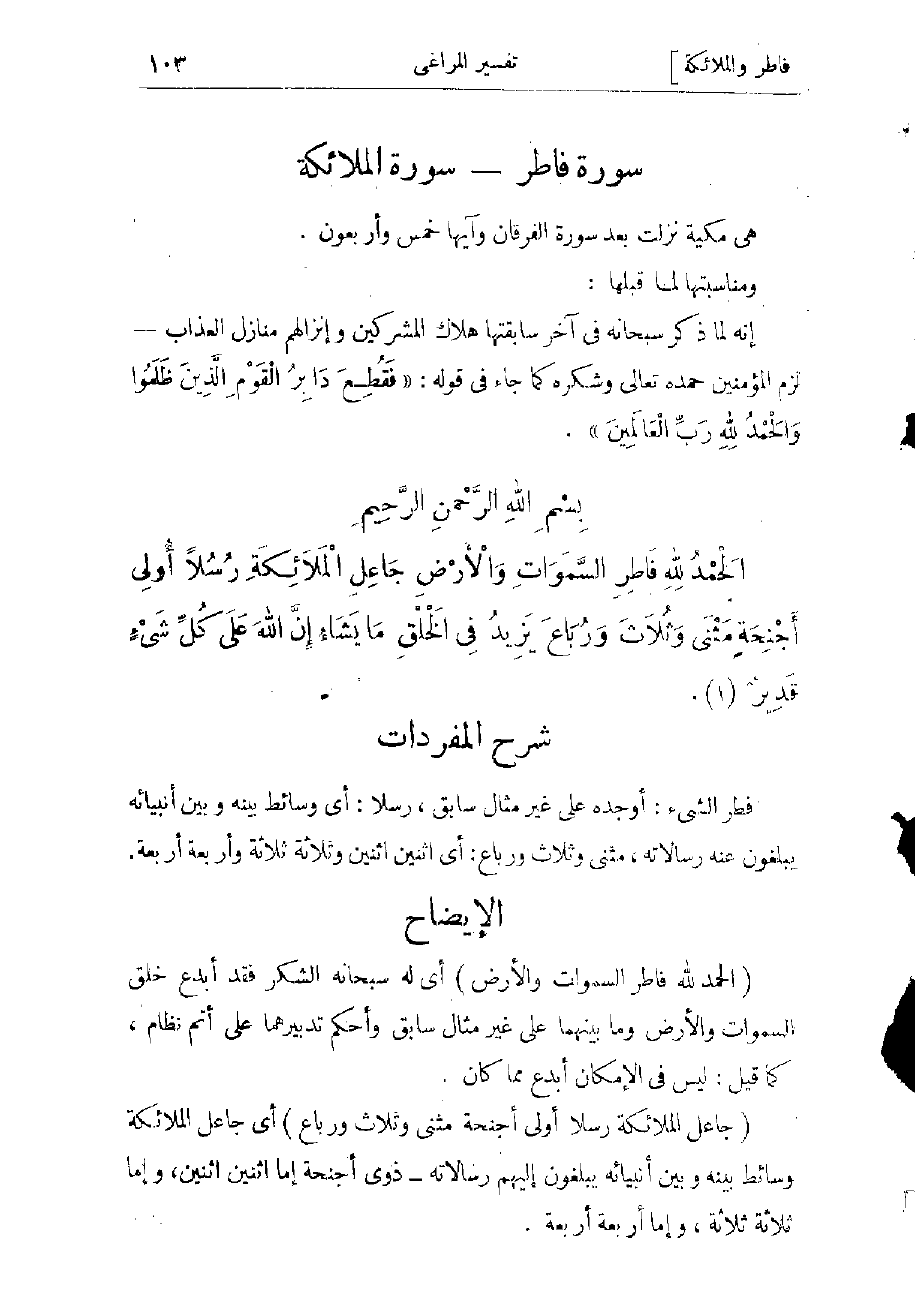 فاطر والملائكة ] تفسير المراغى ١٠٣
سورة فاطر — سورة الملائكة
هى مكية نزلت بعد سورة الفرقان وآيها خمس وأربعون .
ومناسبتها لما قبلها :
إنه لما ذكر سبحانه فى آخر سابقتها هلاك المشركين وإنزالهم منازل العذاب —
لزم المؤمنين حمده تعالى وشكره كما جاء فى قوله : « فَقُطِعَ دَابِرُ الْقَوْمِ الَّذِينَ ظَلَمُوا
وَالْحَمْدُ لِلهِ رَبِّ الْعَالَمِينَ » .
بِسْمِ اللهِ الرَّحْمنِ الرَّحِيمِ
الْحَمْدُ لِلهِ فَاطِرِ السَّمَوَاتِ وَالْأَرْضِ جَاعِلِ الْمَلَائِكَةِ رُسُلاً أُولِى
أَجْنِحَةٍ مَثْنَى وَثُلَاثَ وَرُبَاعَ يَزِيدُ فِى الْخَلْقِ مَا يَشَاءُ إِنَّ اللهَ عَلَى كُلِّ شَىْءٍ
قَدِيرٌ (١) .
شرح المفردات
فطر الشىء : أوجده على غير مثال سابق ، رسلا : أى وسائط بينه وبين أنبيائه
يبلغون عنه رسالاته ، مثنى وثلاث ورباع : أى اثنين اثنين وثلاثة ثلاثة وأربعة أربعة .
الإيضاح
( الحمد لله فاطر السموات والأرض ) أى له سبحانه الشكر فقد أبدع خلق
السموات والأرض وما بينهما على غير مثال سابق وأحكم تدبيرهما على أتم نظام ،
كما قيل : ليس فى الإمكان أبدع مما كان .
( جاعل الملائكة رسلا أولى أجنحة مثنى وثلاث ورباع ) أى جاعل الملائكة
وسائط بينه وبين أنبيائه يبلغون إليهم رسالاته – ذوى أجنحة إما اثنين اثنين ، وإما
ثلاثة ثلاثة ، وإما أربعة أربعة .